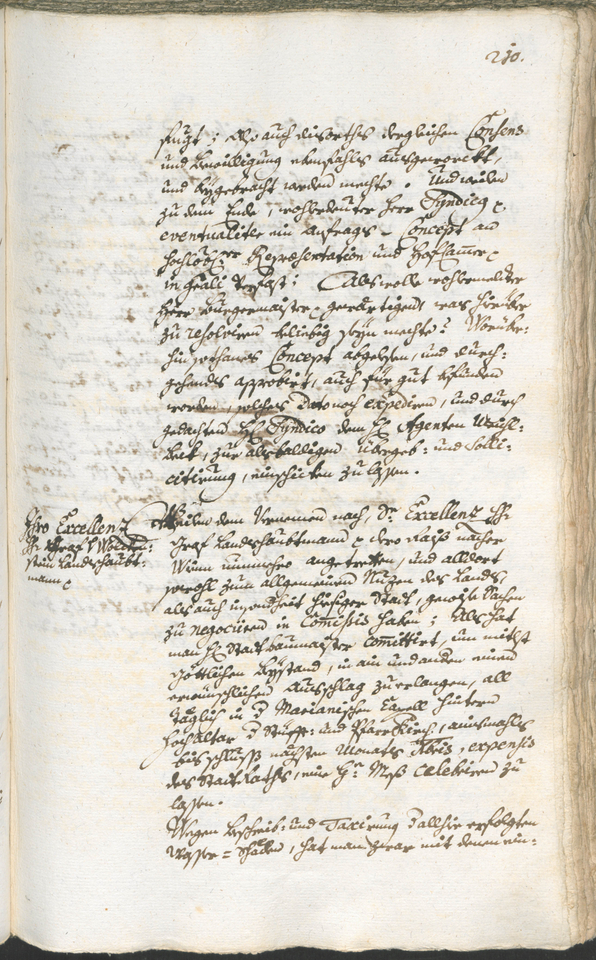 210.
fuegt; Als auch diserthes dergleichen Consens
und bewilligung ebenfahls ausgewürckt,
und beygebracht werden mechte. Und weilen
zu dem Ende, wohlbedeuter Herr Syndicus
eventualiter ein Anfrags-Concept an
hochlöbl. Repræsentation und Hofkammer
in verfast: Als wolle wohlermelter
Herr Burgermaister gewärtigent was hierüber
zu resolviren beliebig seyn mechte? Worüber:
hin sothanes Concept abgelesen, und durch:
gehends approbirt, auch für gut befunden
worden, solches Dato noch expediren, und durch
gedachten H. Syndico dem H. Agenten
, zur alsbaldigen übergeb- und Solli-
citirung, einschicken zu lassen.
Ihro Excellenz
H. Graf v Wolcken:
stein Landshaubt:
mann
Weilen dem Vernemen nach, Sr. Excellenz H.
Graf Landeshaubtmann dero Rais nacher
Wienn nunmehro angetretten, und alldort
sowohl zum allgemeinen Nuzen des Lands,
als auch insonderheit hiesiger Statt, gewise Sachen
zu negociren in Comissis haben; Als hat
man H. Stattbaumaister comittirt, um mitlst
göttlichen Beystand, in ain und andern einen
erwünschlichen Ausschlag zu erlangen, all
täglich in d Marianischen Capell hintern
Hochaltar d Stifft- und Pfarrkirch,
bis schluß nächsten Monats Xbris, expensis
des Statt Raths, eine H. Meß celebriren zu
lassen.
Wegen beschreib- und Taxirung d allhir erfolgten
Wasser-Schäden, hat man zwar mit denen ein-